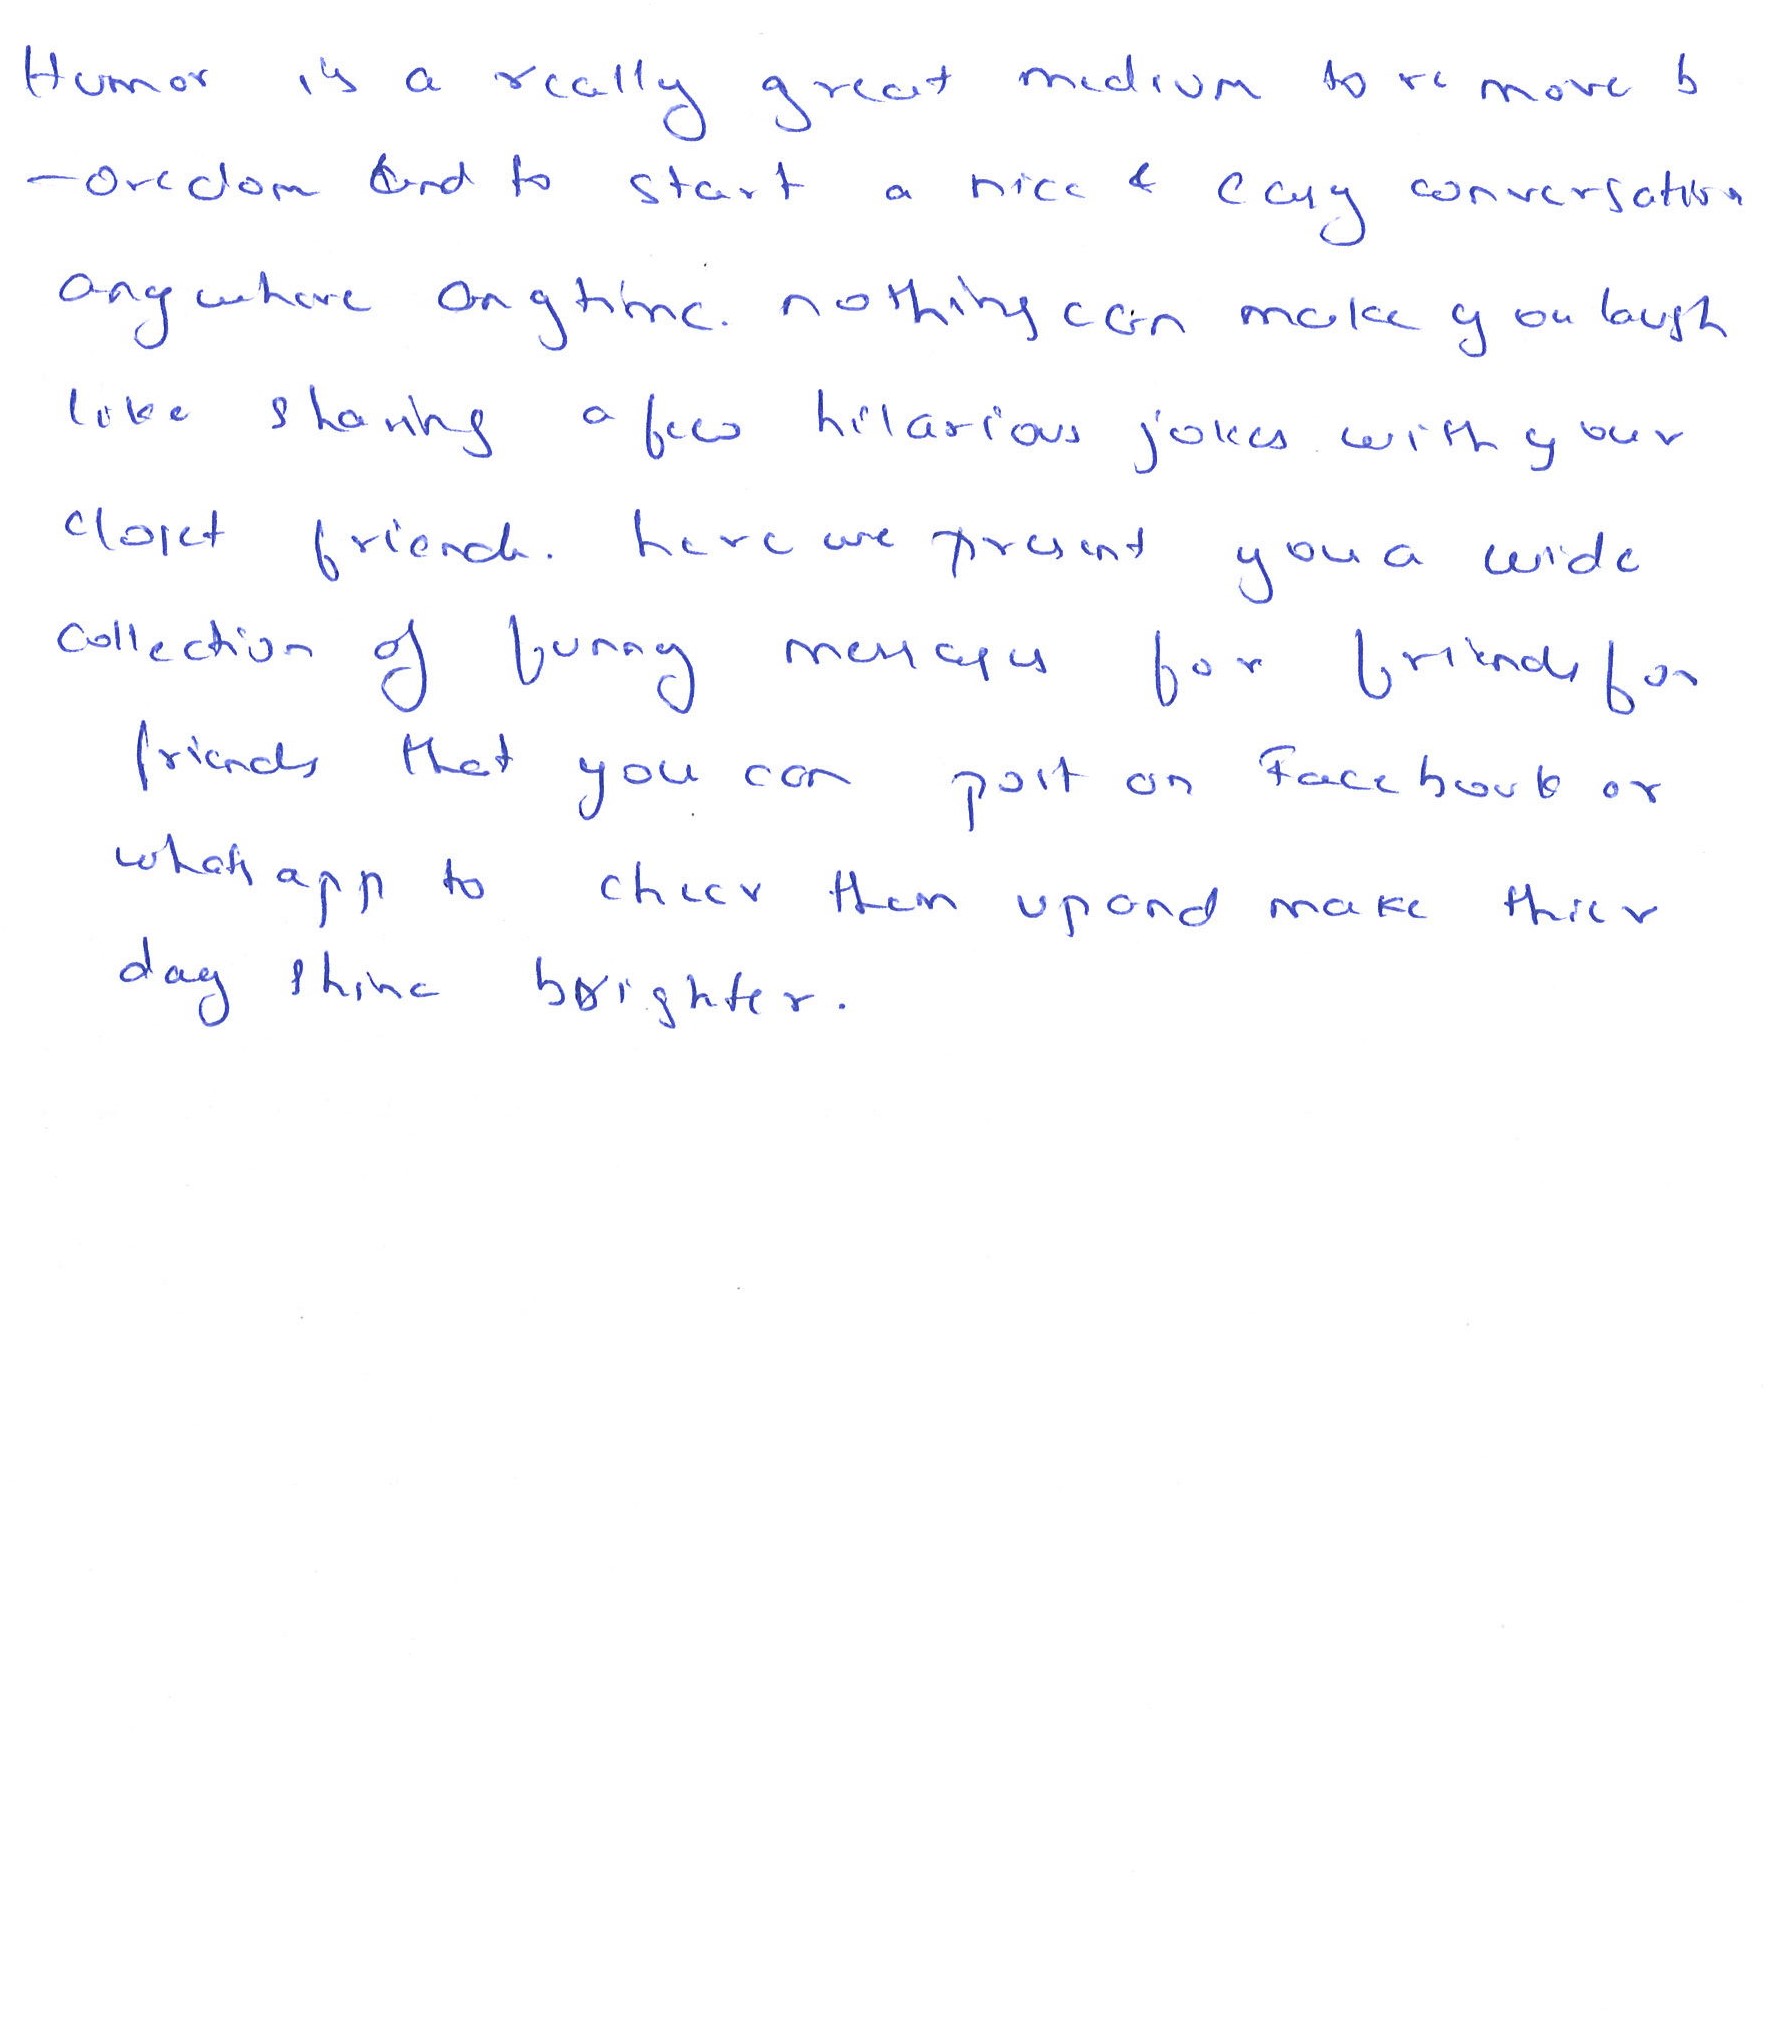 Humor is a really great medium to remove b
-oredom and to start a nice & easy conversation
anywhere anytime. nothing can make you laugh
like sharing a few hilarious jokes with your
closet friends. here we present you a wide
collection of funny messages for friends for
friends that you can post on Facebook or
whatsapp to cheer them up and make thier
day shine brighter.